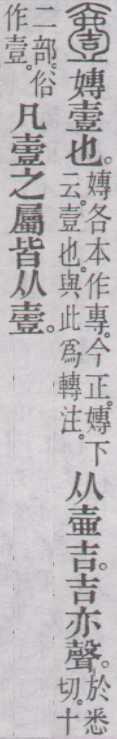 嫥壹也。嫥各本作專。今正。嫥下云。壹也。與此爲轉注。从壺吉。吉亦聲。於悉切。十
二部。俗作壹。凡壹之屬皆从壹。